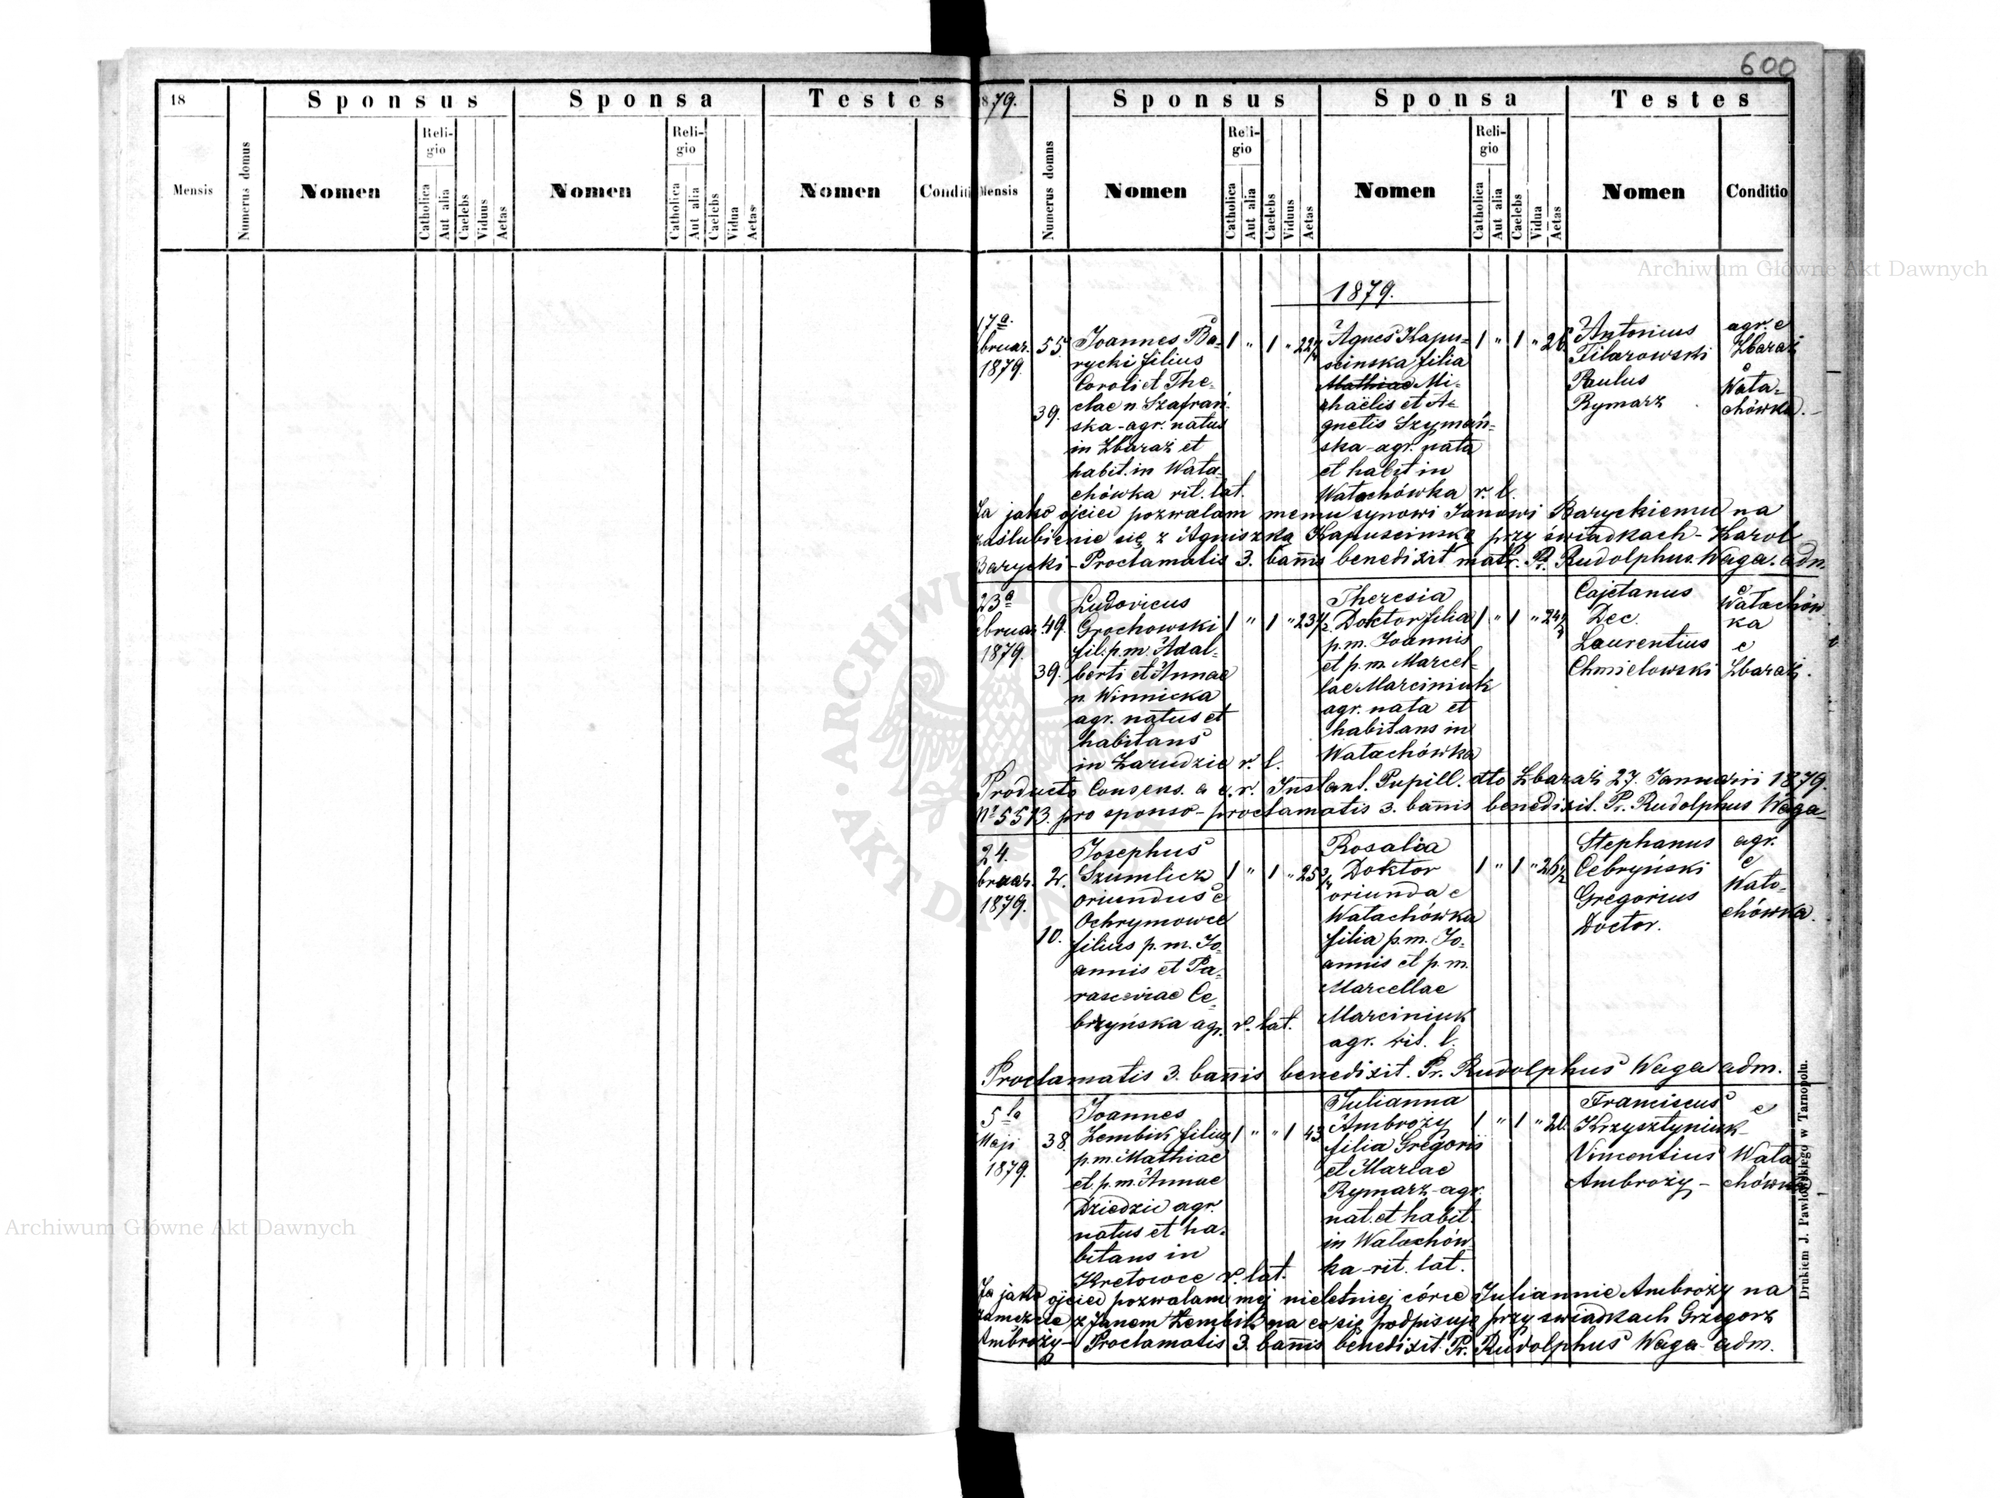 600
18
Sponsus
Sponsa
Testes
Mensis
Numerus domus
Nomen
Religio
Catholica
Aut alia
Caelebs
Viduus
Aetas
Nomen
Religio
Catholica
Aut alia
Caelebs
Vidua
Aetas
Nomen
Conditi
1879.
Sponsus
Sponsa
Testes
Mensis
Numerus domus
Nomen
Religio
Catholica
Aut alia
Caelebs
Viduus
Aetas
Nomen
Religio
Catholica
Aut alia
Caelebs
Vidua
Aetas
Nomen
Conditio
Archiwum Główne Akt Dawnych
1879.
17a
bruar.
1879.
55.
39.
Joannes Ba-
rycki filius
Caroli et The-
clae n. Szafrań-
ska - agr. natus
in Zbaraż et
habit. in Wała-
chówka rit. lat.
1 " 1 " 22
Agnes Kapu-
scinska filia
Mathiae Mi-
chaëlis et A-
gnetis Szymań-
ska - agr. nata
et habit in
Wałachówka r. l.
1 " 1 " 26.
Antonius
Filarowski
Paulus
Rymarz
agr. e
Zbaraż
e
Wała-
chówka.
Ja jako ojciec pozwalam memu synowi Janowi Baryckiemu na
zaślubienie się z Agniszką Kapuscinską przy świadkach - Karol
Barycki - Proclamatis 3. bannis benedixit matr. Pr. Rudolphus Waga. adm.
23a
ebruar.
1879.
49.
39.
Ludovicus
Grochowski
fil. p.m. Adal-
berti et Annae
n. Winnicka
agr. natus et
habitans
in Zarudzie r. l.
1 " 1 " 23 1/2
Theresia
Doktor filia
p.m. Joannis
et p.m. Marcel-
lae Marciniuk
agr. nata et
habitans in
Wałachówka
1 " 1 " 24
Cajetanus
Dec.
Laurentius
Chmielowski
e
Wałachów
ka
e
Zbaraż.
Producto Consens. a c. r. Instant. Pupill. dto Zbaraż 27. Januarii 1879.
No 5573. pro sponso - proclamatis 3. bannis benedixit. Pr. Rudolphus Waga
24.
bruar.
1879.
2.
10.
Josephus
Szumlicz
oriundus e
Ochrymowce
filius p.m. Jo-
annis et Pa-
rasceviae Ce-
brzyńska agr. r. lat.
1 " 1 " 25
Rosalia
Doktor
oriunda e
Wałachówka
filia p.m. Jo-
annis et p.m.
Marcellae
Marciniuk
agr. rit. l.
1 " 1 " 26 1/2
Stephanus
Cebryński
Gregorius
Doctor.
agr.
e
Wało-
chówka.
Proclamatis 3. bannis benedixit. Pr. Rudolphus Waga adm.
5ta
Maji
1879.
38.
Joannes
Zembik filius
p.m. Mathiae
et p.m. Annae
Dziedzic agr.
natus et ha-
bitans in
Kretowce r. lat.
1 " " 1 43
Julianna
Ambroży
filia Gregorii
et Mariae
Rymarz - agr.
nat. et habit.
in Wałachów
ka - rit. lat.
1 " 1 " 20.
Franciscus
Krzysztyniuk
Vincentius
Ambroży -
e
Wała
chówka
Ja jako ojciec pozwalam mej nieletniej córce Juliannie Ambroży na
zamęzcie z Janem Zembik na co się podpisuję przy swiadkach Grzegorz
Ambroży - Proclamatis 3. bannis benedixit. Pr. Rudolphus Waga adm.
Drukiem J. Pawłowskiego w Tarnopolu.
ARCHIWUM
AKT DAWNYCH
Archiwum Główne Akt Dawnych